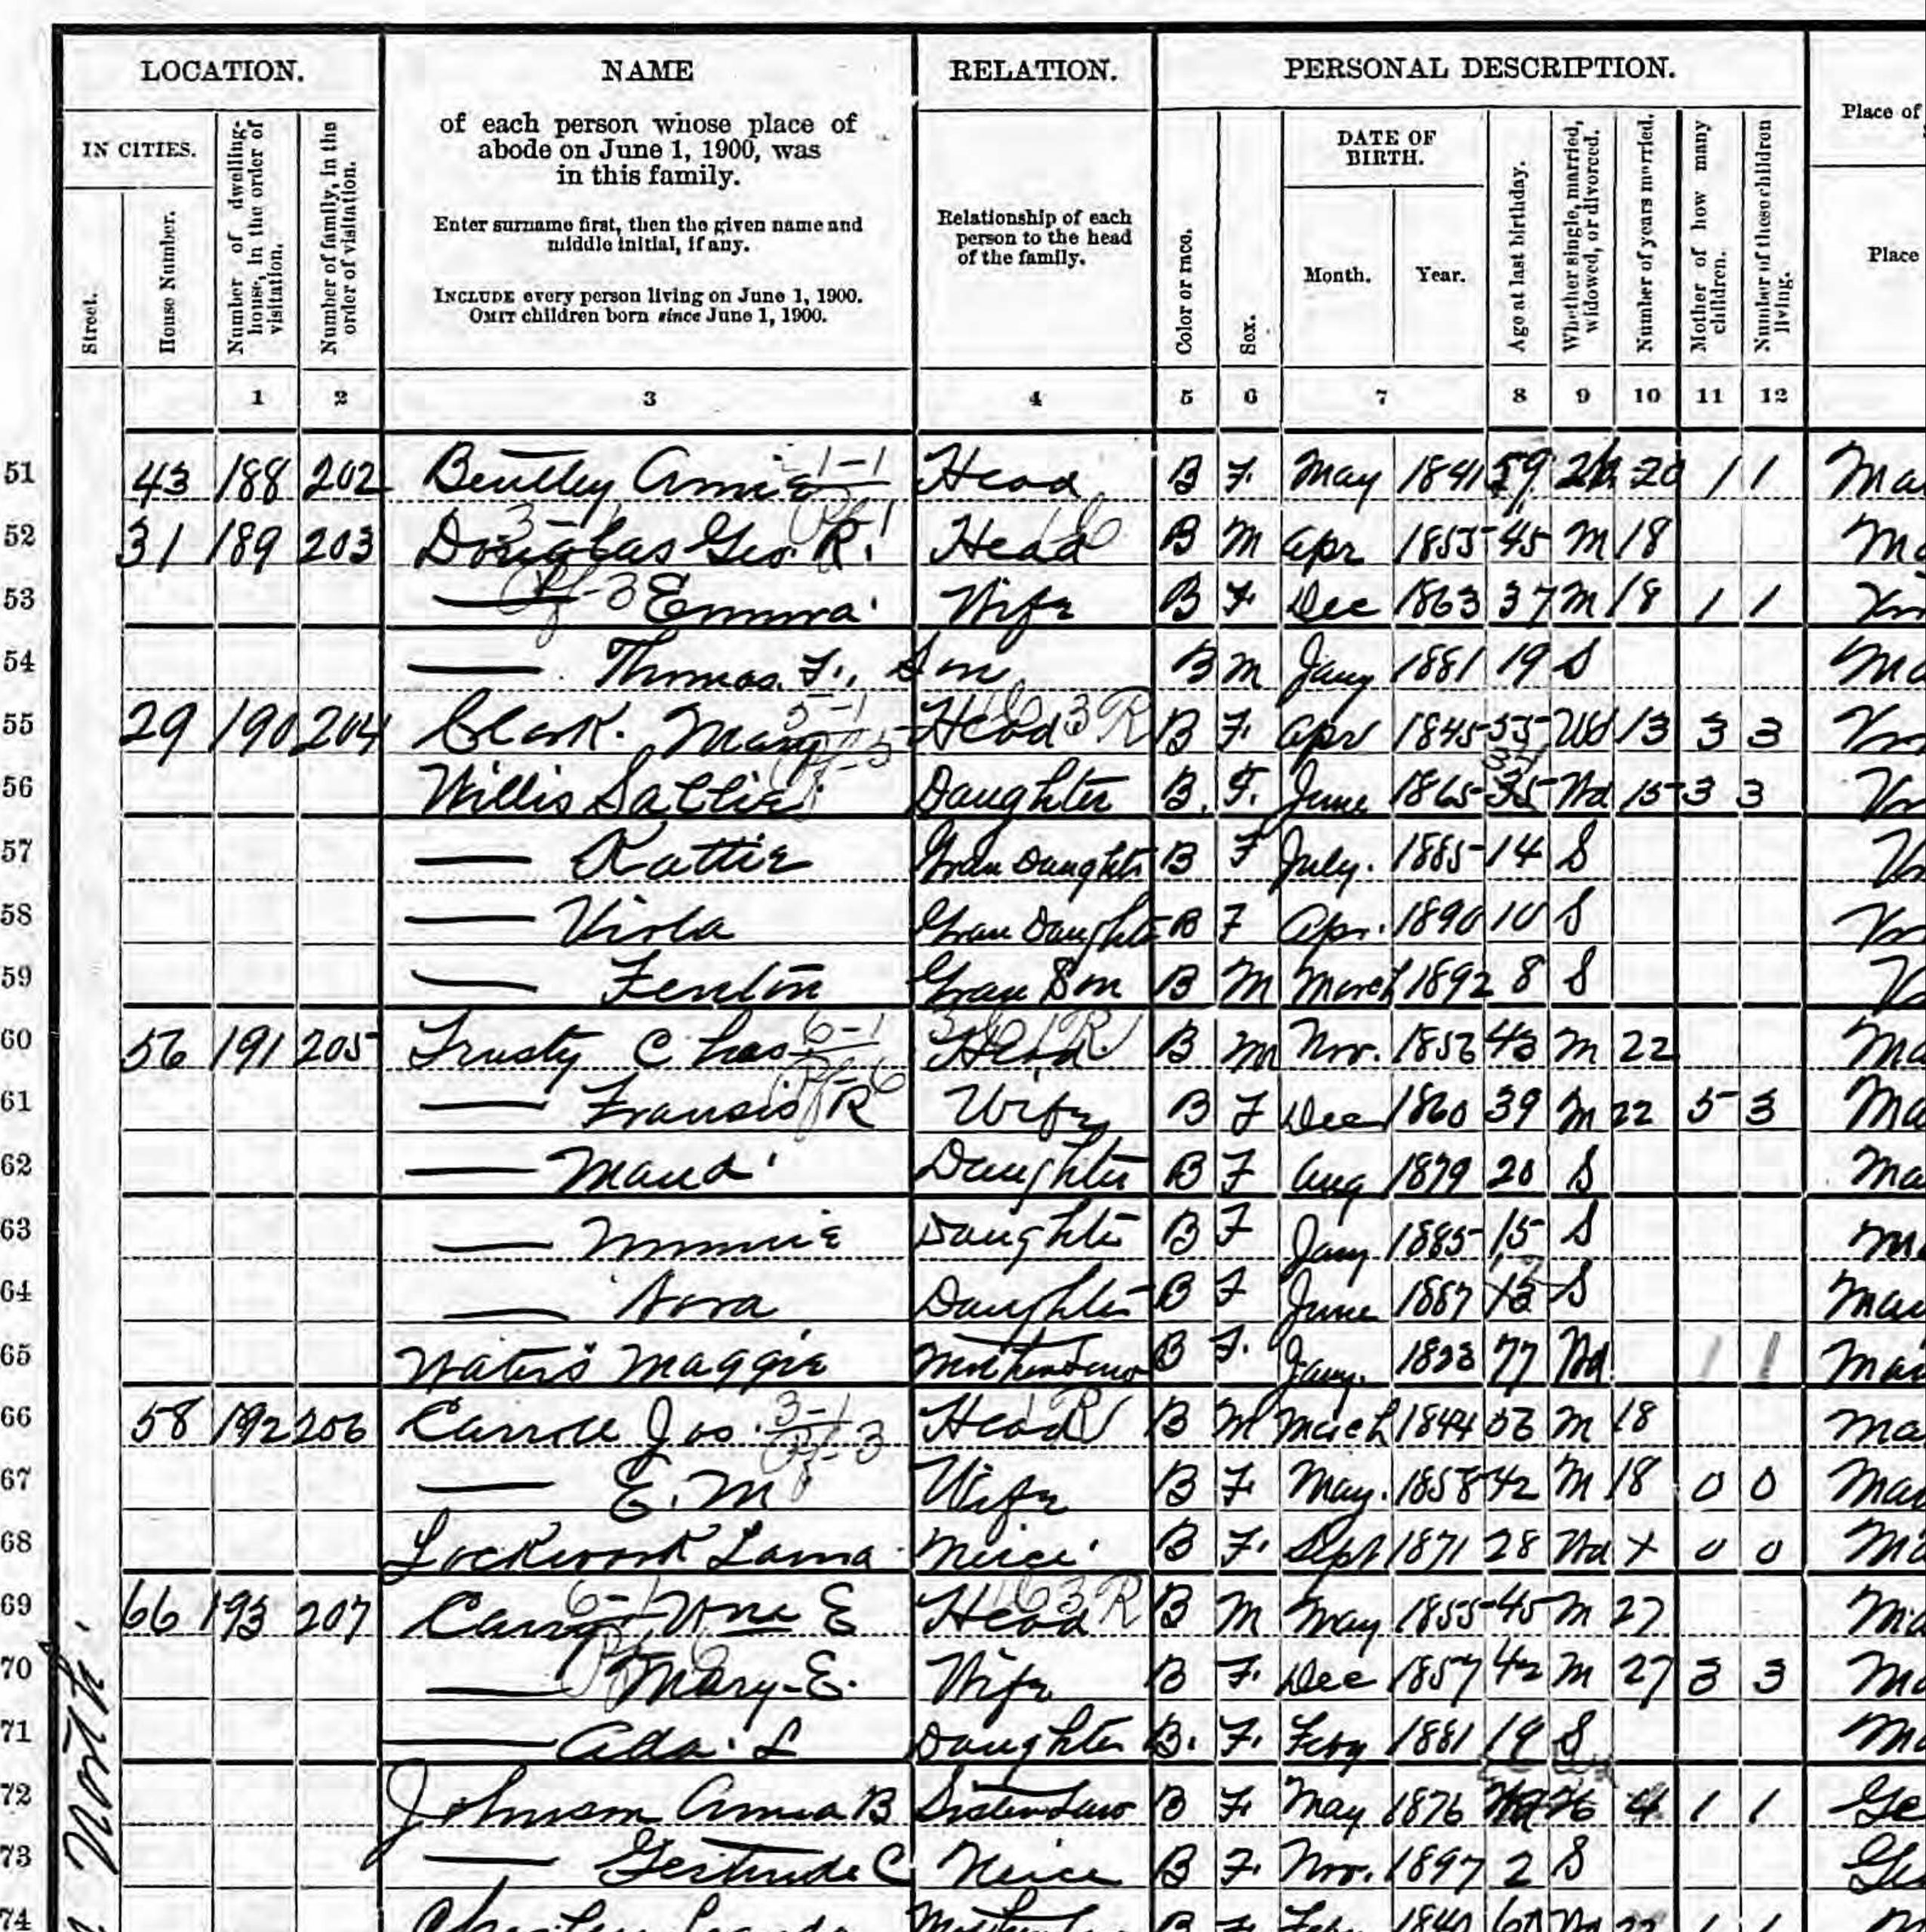 LOCATION.
NAME
RELATION.
PERSONAL DESCRIPTION.
IN CITIES.
Street.
House Number.
Number of dwelling-house, in the order of visitation.
Number of family, in the order of visitation.
of each person whose place of
abode on June 1, 1900, was
in this family.
Enter surname first, then the given name and
middle initial, if any.
INCLUDE every person living on June 1, 1900.
OMIT children born since June 1, 1900.
Relationship of each
person to the head
of the family.
Color or race.
Sex.
DATE OF
BIRTH.
Month.
Year.
Age at last birthday.
Whether single, married, widowed, or divorced.
Number of years married.
Mother of how many children.
Number of these children living.
Place of
Place
1 2 3 4 5 6 7 8 9 10 11 12
51 43 188 202 Bentley Annie 1-1 Head B F. May 1841 59 20 1 1
52 31 189 203 Douglas Geo. R. Head B M Apr 1855 45 M 18
53 — Emma Wife B F. Dec 1863 37 M 18 1 1
54 — Thomas F., Son B M Jany 1881 19 S
55 29 190 204 Clark. Mary 5-1 Head 3 R B F. Apr 1845 55 Wd 13 3 3
56 Willis Sallie Daughter B. F. June 1865 35 Wd 15 3 3
57 — Kattie Gran Daughter B F July. 1885 14 S
58 — Viola Gran Daughter B F Apr. 1890 10 S
59 — Fenton Gran Son B M March 1892 8 S
60 56 191 205 Trusty Chas 6-1 Head B M Nov. 43 M 22
61 — Fransis R Wife B F Dec 1860 39 M 22 5 3
62 — Maud Daughter B F Aug 1879 20 S
63 — Minnie Daughter B F Jany 1885 15 S
64 — Nora Daughter B F June 1887 13 S
65 Waters Maggie B F. Jany. 1823 77 Wd 1 1
66 58 192 206 Carroll Jos. 3-1 Head B M March 1844 56 M 18
67 — E. M Wife B F. May. 1858 42 M 18 0 0
68 Neice B F. Sept 1871 28 Wd X 0 0
69 66 193 207 Wm E Head 3 R B M May 1855 45 M 27
70 — Mary E. Wife B F. Dec 1857 42 M 27 3 3
71 — Ada. L Daughter B. F. Feby 1881 19 S
72 Johnson Anna B Sister Law B F. May 1876 4 1 1 Ge
73 — Gertrude C Neice B F. Nov. 1897 2 S Ge
74 B F. Feby 1840 60 Wd 1 1
North.